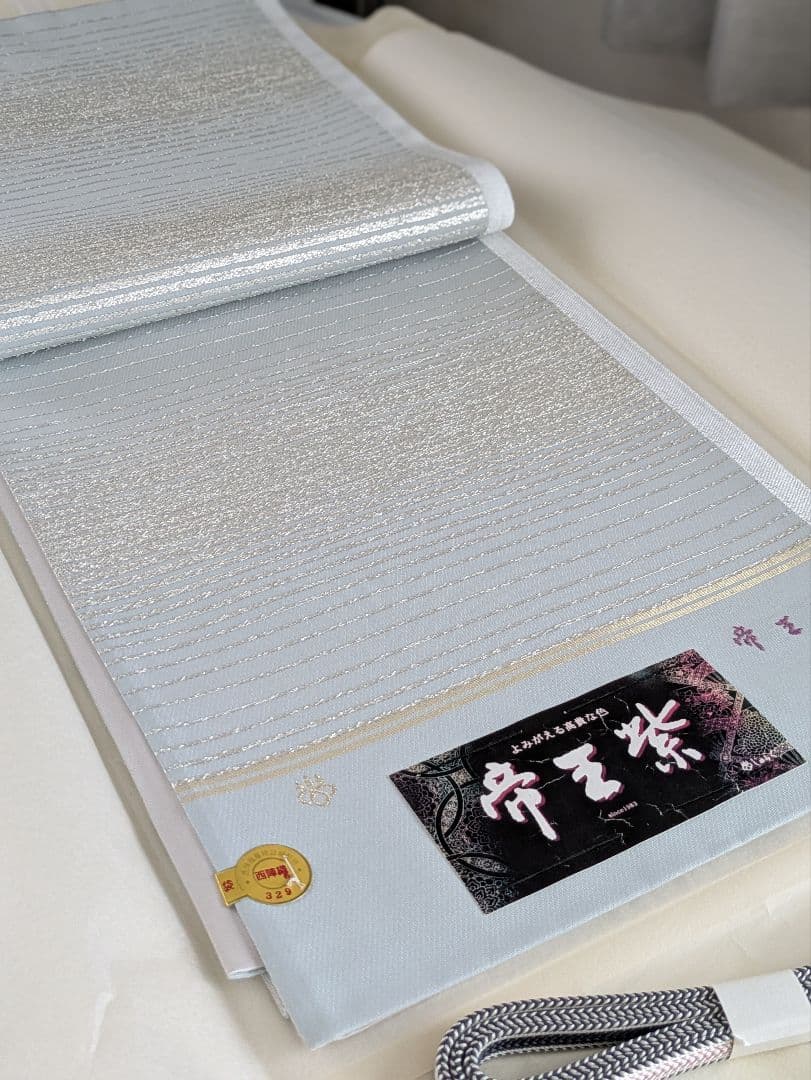 帝王
よみがえる高貴な色
帝王紫
since1983
袋
西陣織
329